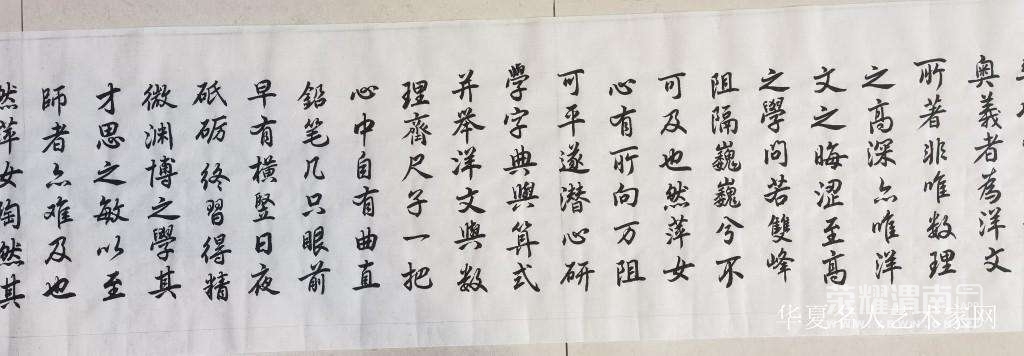 奥義者為洋文
所著非唯数理
之高深亦唯洋
文之晦涩至高
之學问若雙峰
阻隔巍巍兮不
可及也然萍女
心有所向万阻
可平遂潜心研
學字典與算式
并举洋文與数
理齊尺子一把
心中自有曲直
鉛笔几只眼前
早有横竖日夜
砥砺终習得精
微渊博之學其
才思之敏以至
師者亦难及也
然萍女陶然其
荣耀渭南
华夏名人艺术家网